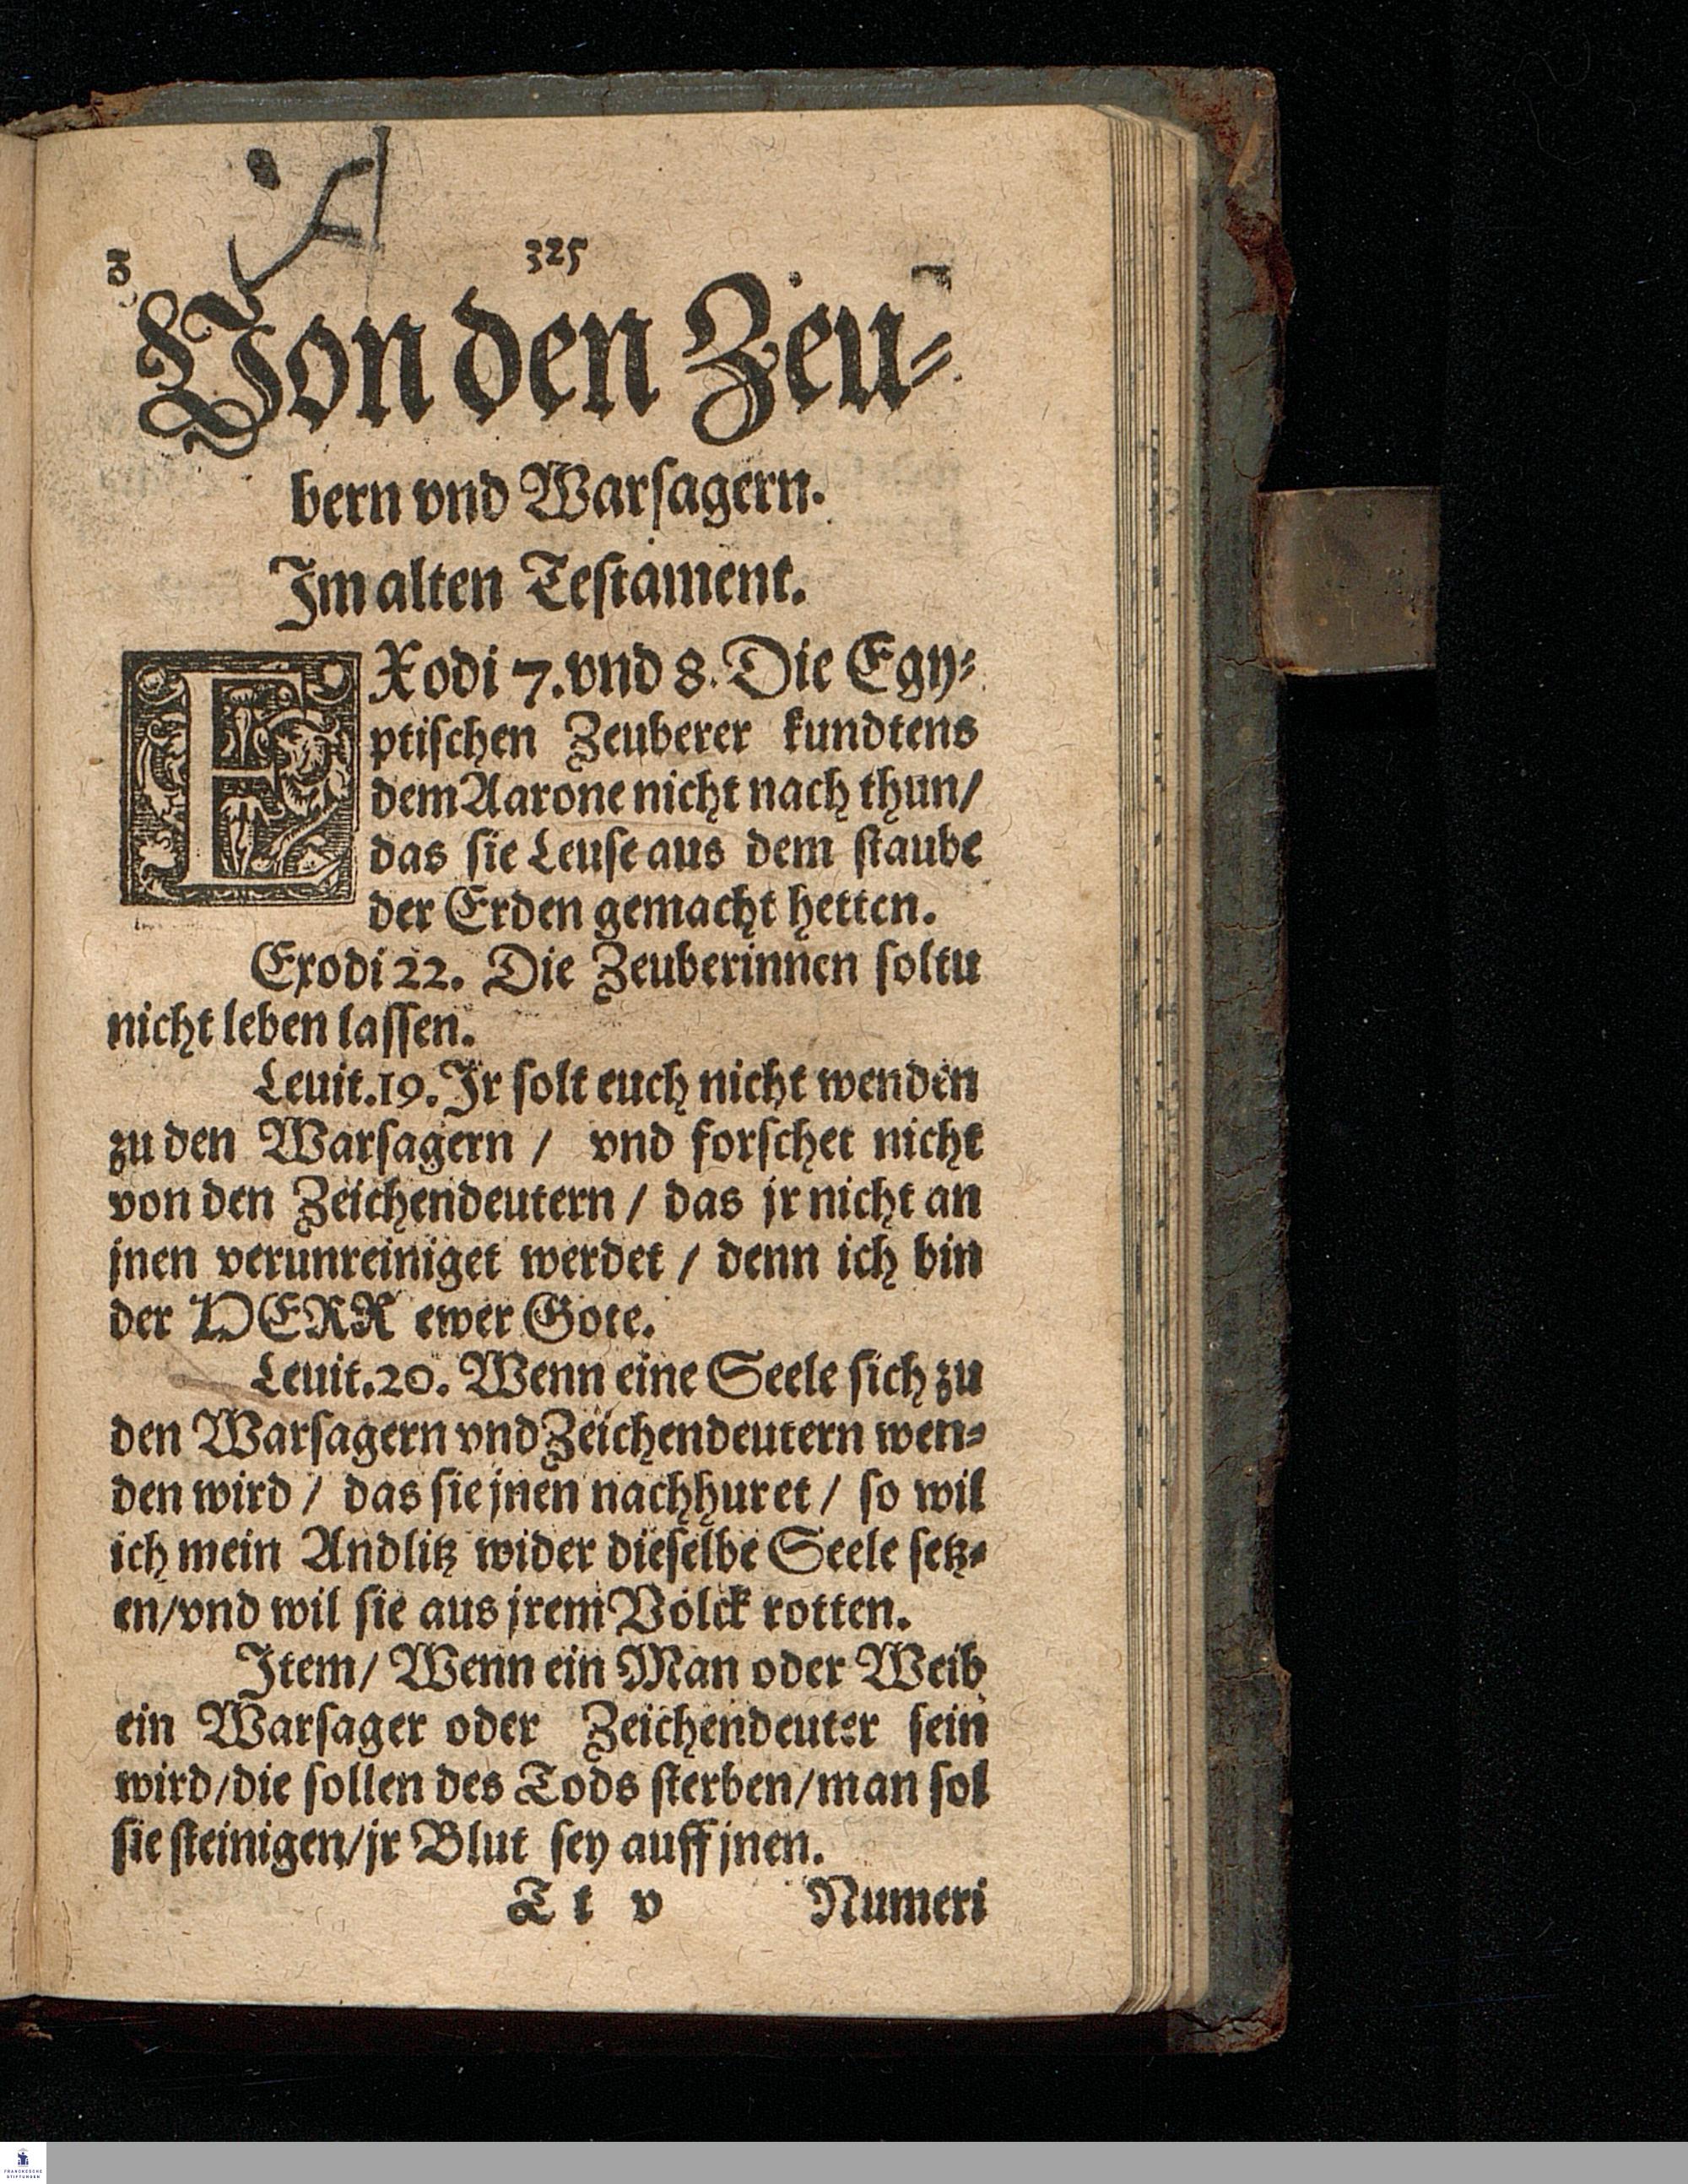 325
Von den Zeu⸗
bern vnd Warsagern.
Im alten Testament.
EXodi 7. vnd 8. Die Egy⸗
ptischen Zeuberer kundtens
dem Aarone nicht nach thun/
das sie Leuse aus dem staube
der Erden gemacht hetten.
Exodi 22. Die Zeuberinnen soltu
nicht leben lassen.
Leuit.19. Jr solt euch nicht wenden
zu den Warsagern / vnd forschet nicht
von den Zeichendeutern / das jr nicht an
jnen verunreiniget werdet / denn ich bin
der HERR ewer Gott.
Leuit.20. Wenn eine Seele sich zu
den Warsagern vnd Zeichendeutern wen⸗
den wird / das sie jnen nachhuret / so wil
ich mein Andlitz wider dieselbe Seele setz⸗
en/vnd wil sie aus jrem Volck rotten.
Item/ Wenn ein Man oder Weib
ein Warsager oder Zeichendeuter sein
wird/die sollen des Tods sterben/man sol
sie steinigen/jr Blut sey auff jnen.
T t v Numeri
FRANCKESCHE
STIFTUNGEN